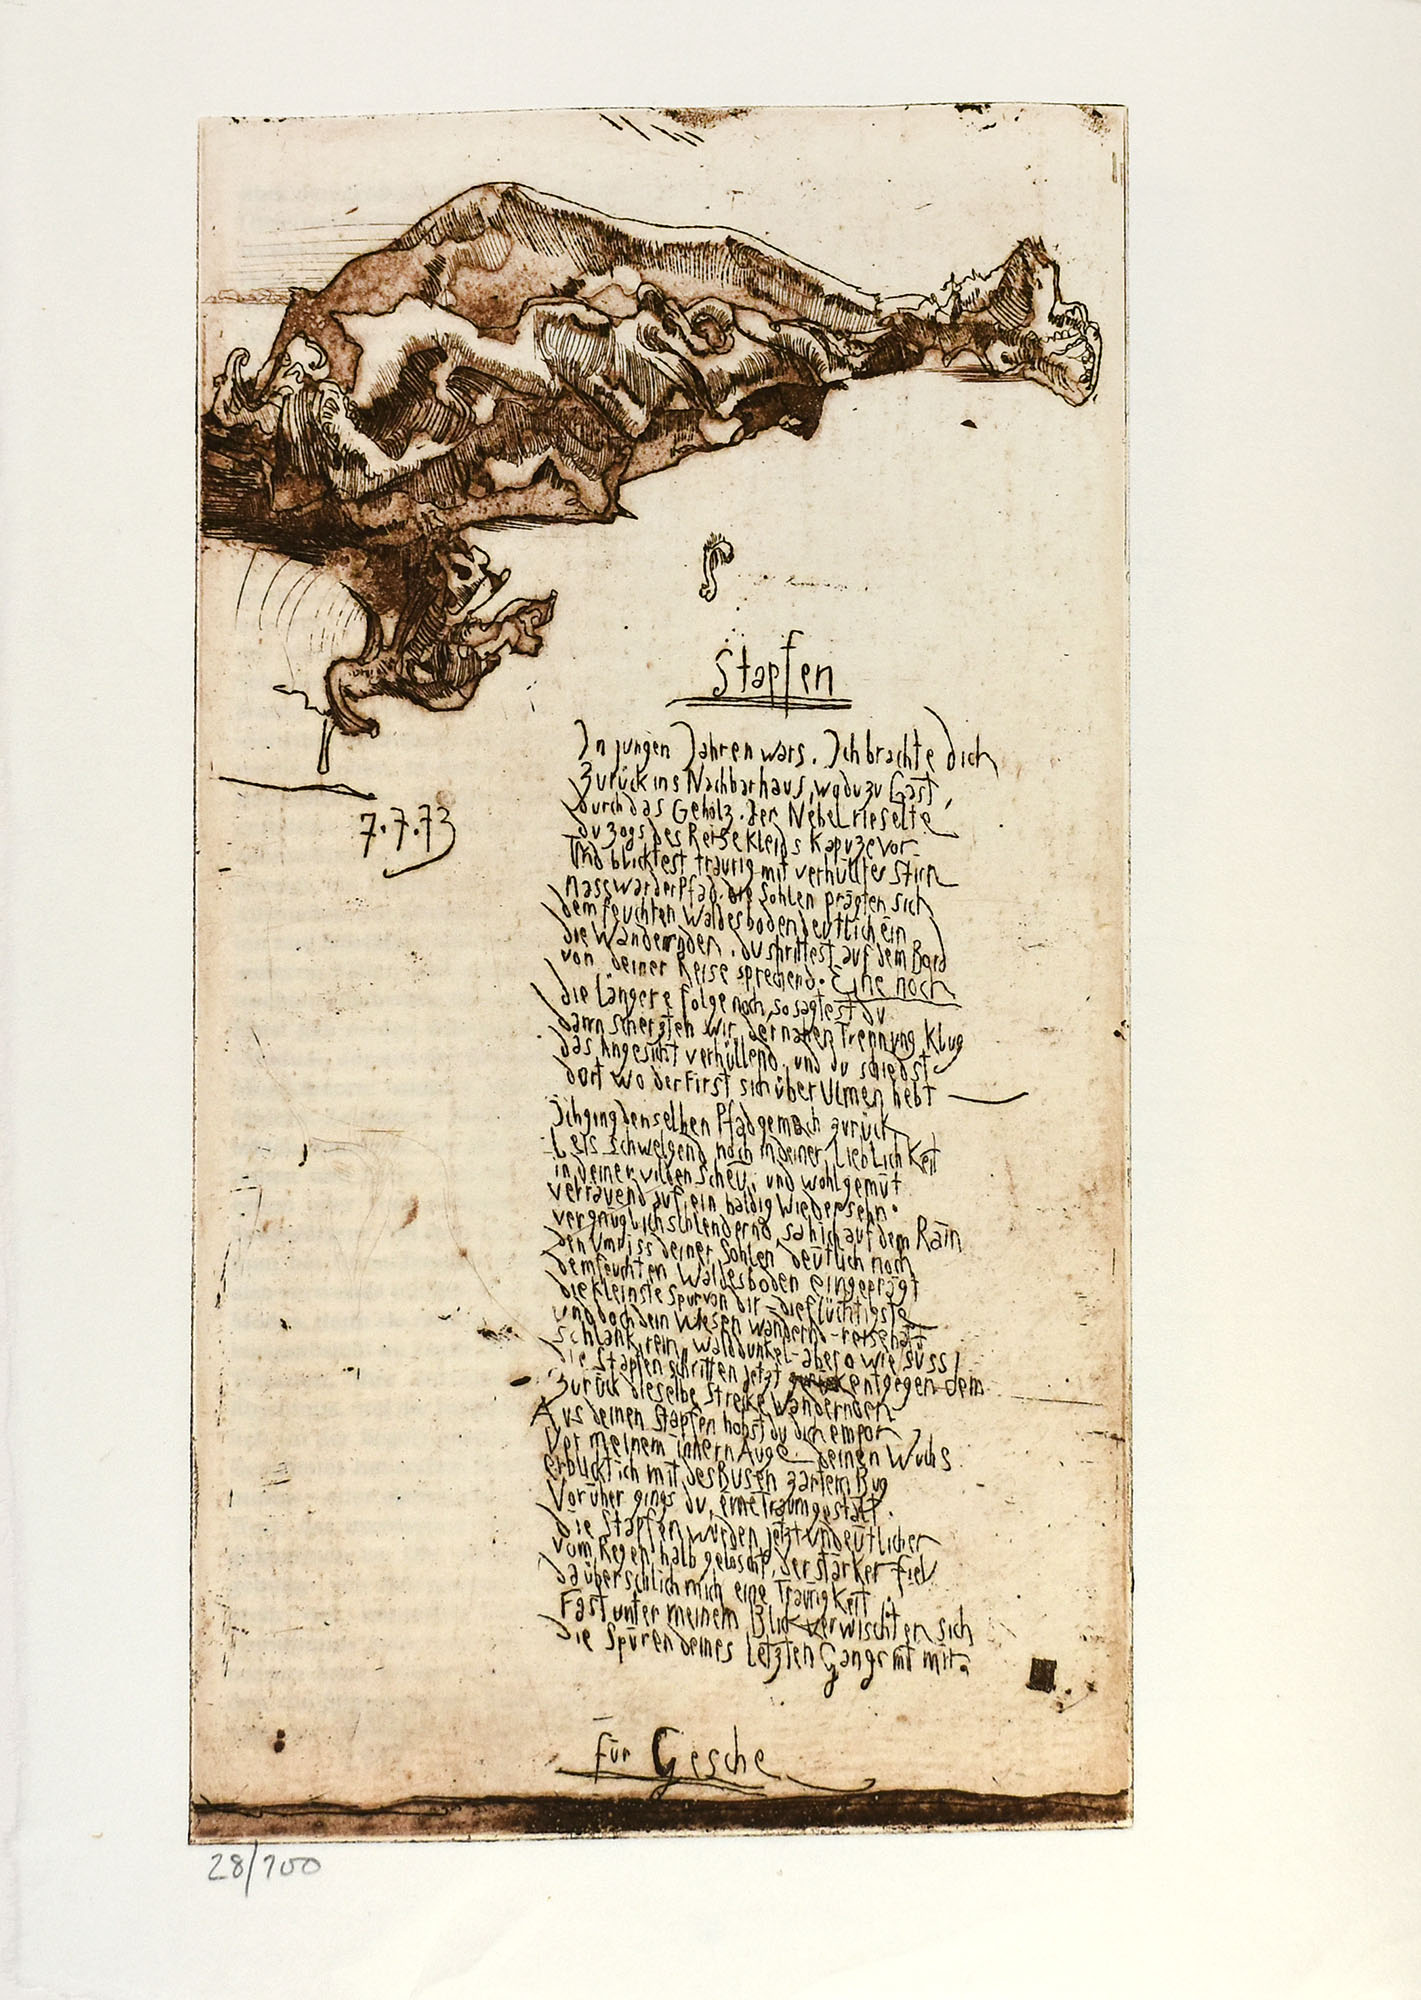 Stapfen
In jungen Jahren wars. Ich brachte dich
Zurück ins Nachbarhaus, wo du zu Gast,
durch das Gehölz. der Nebel rieselte
du zogs des Reisekleids Kapuze vor
Und blicktest traurig mit verhüllter Stirn
nass war der Pfad. die Sohlen prägten sich
dem feuchten Waldesboden deutlich ein
die Wandernden. du shrittest auf dem Bord
von deiner Reise sprechend. Eine noch
die längere folge noch, so sagtest du
dann scherzten wir, der nahen Trennung klug
das Angesicht verhüllend, und du schiedst
dort wo der First sich über Ulmen hebt
Ich ging denselben Pfad gemach zurück
Leis schwelgend noch in deiner Lieblichkeit
in deiner wilden Scheu, und wohlgemut
vertrauend auf ein baldig Wiedersehn.
vergnüglich schlendernd, sah ich auf dem Rain
den Umriss deiner Sohlen deutlich noch
dem feuchten Waldesboden eingeprägt
die kleinste Spur von dir - die flüchtigste
und doch dein Wesen wandernd - reisehaft
Schlank, rein, walddunkel - aber o wie süss!
die Stapfen schritten jetzt entgegen dem
Zurück dieselbe Streke Wandernden
Aus deinen Stapfen hobst du dich empor
Vor meinem innern Auge. deinen Wuchs
erblickt ich mit des Busens zartem Bug
Vorüber gings du, eine Traumgestalt.
die Stapfen wurden jetzt undeutlicher
vom Regen halb gelöscht, der stärker fiel
da überschlich mich eine Traurigkeit.
Fast unter meinem Blick verwischten sich
die Spuren deines letzten Gangs mit mir.
7.7.73
für Gesche
28/100